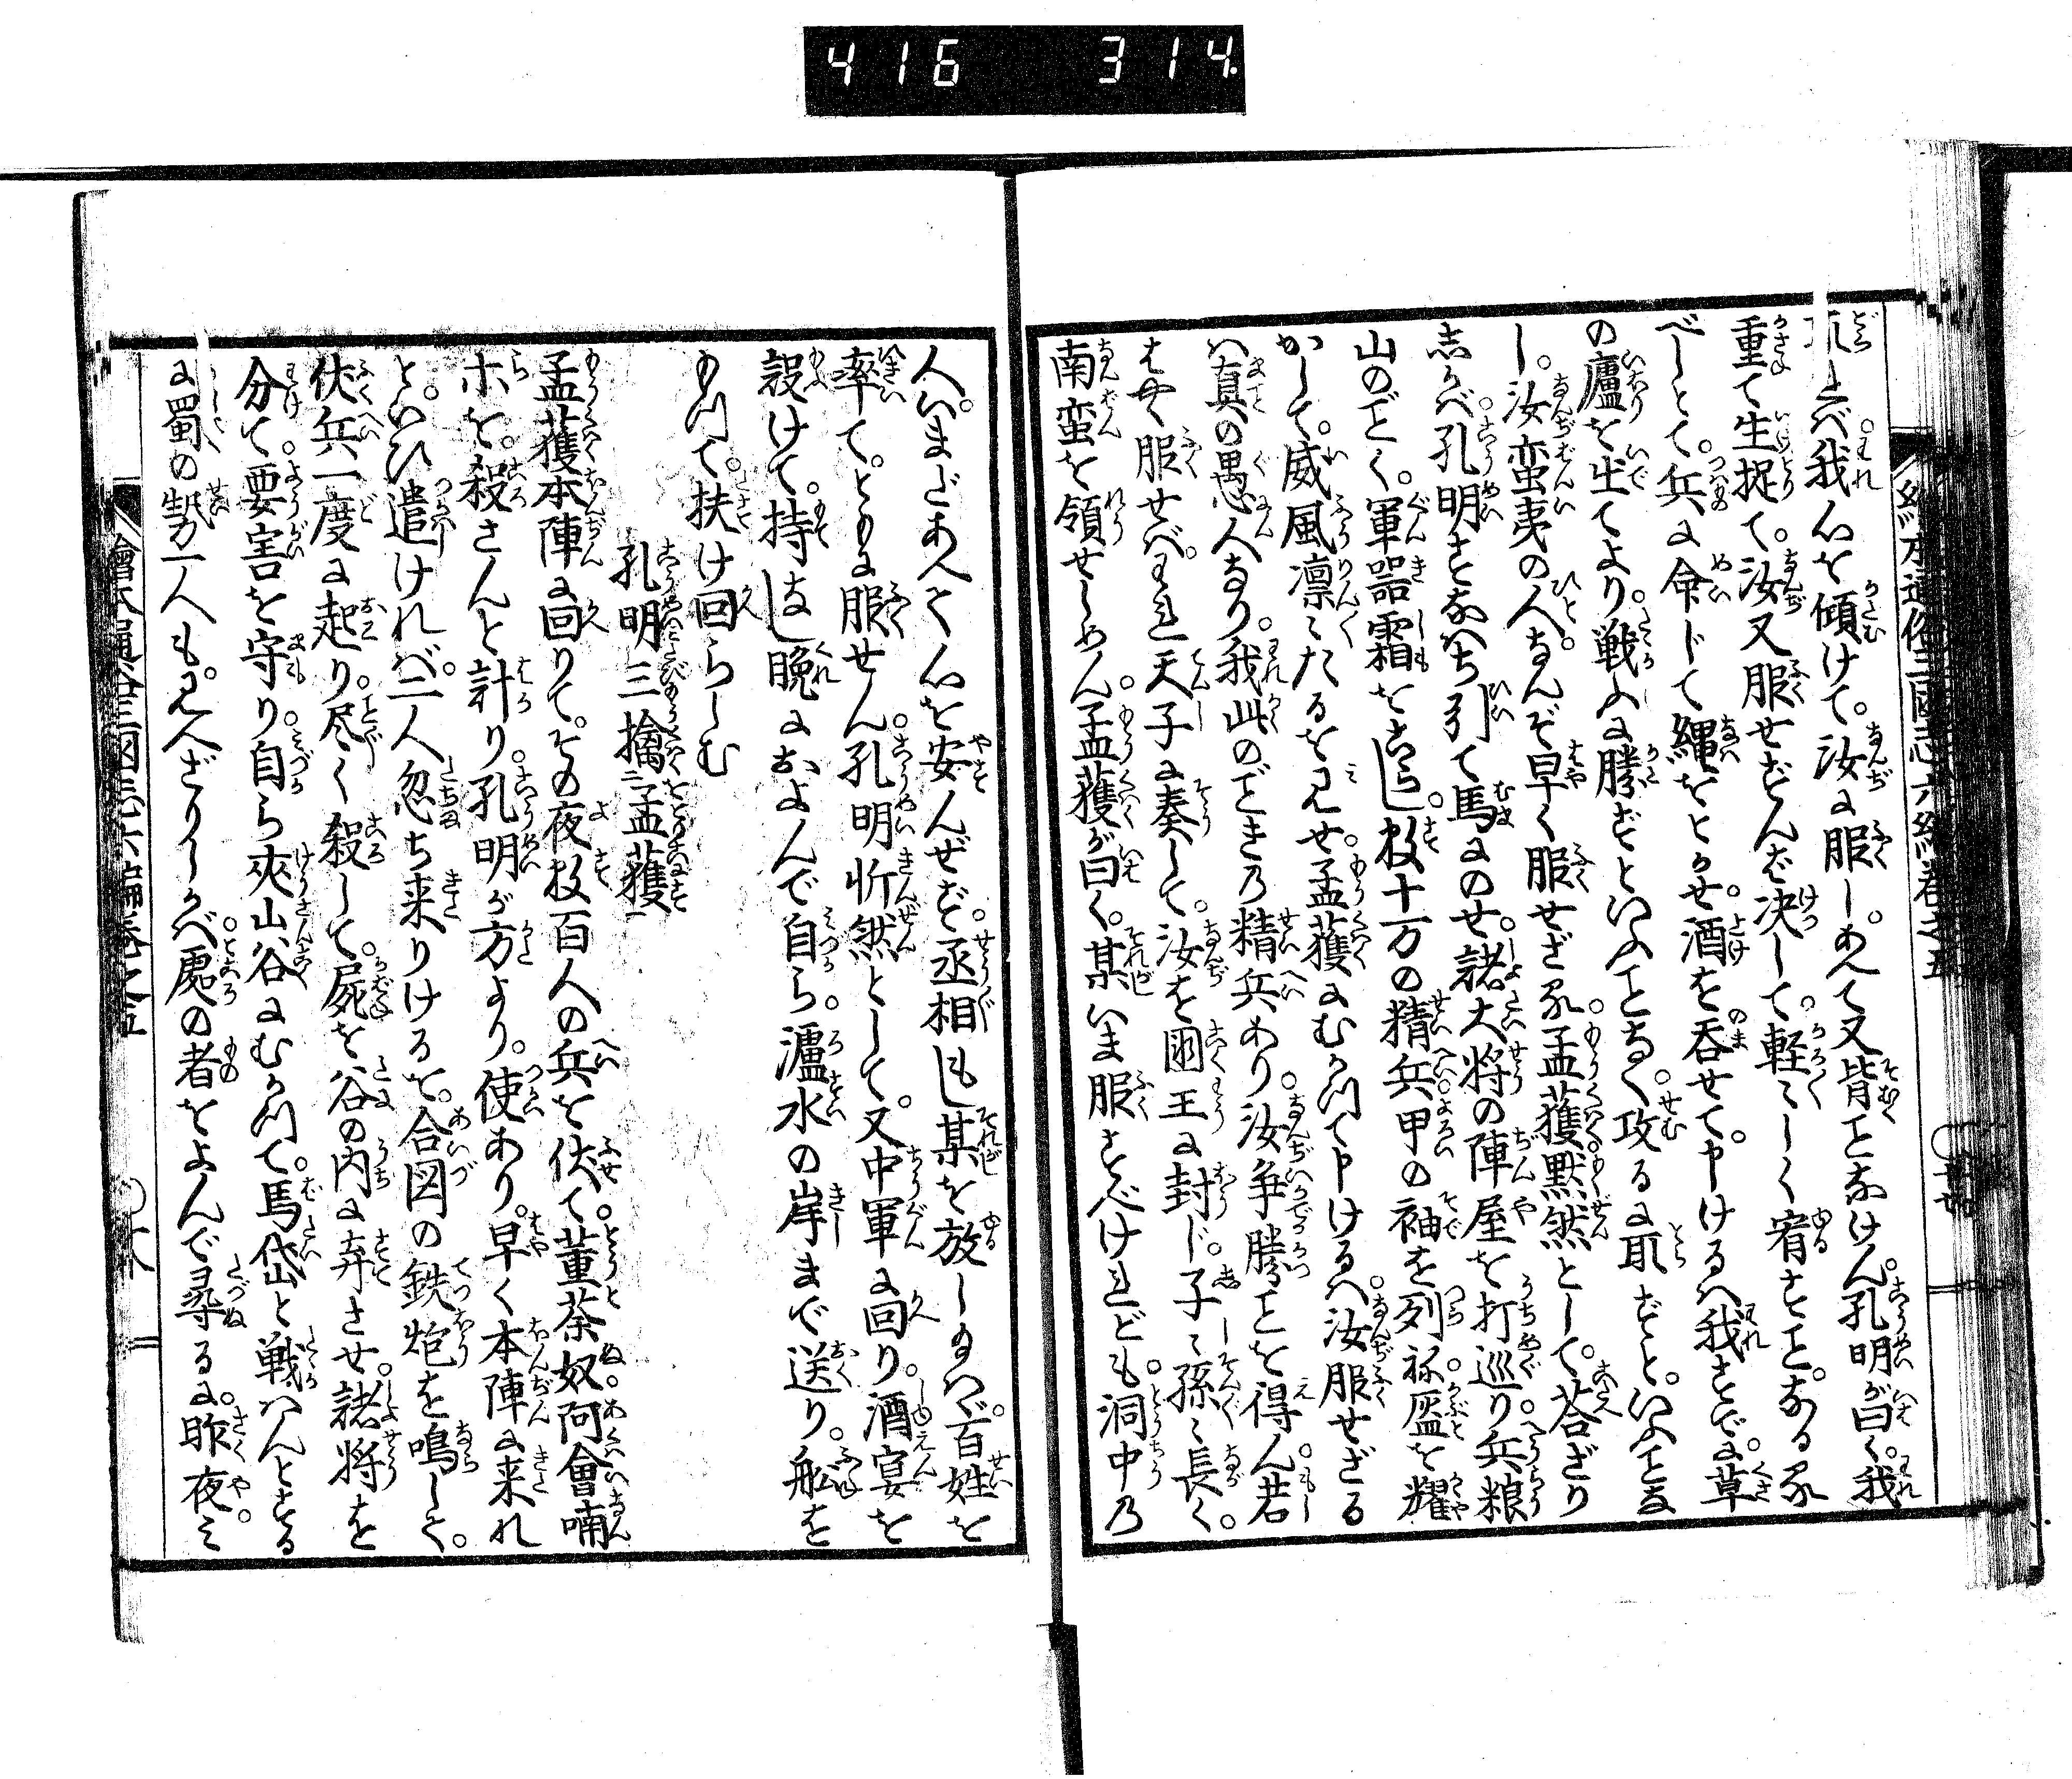 416 314.
繪本通俗三國志六編巻之五
らば我心を傾けて。汝に服しあんで又背ことなけん。孔明が曰く。我
重て生捉て。汝又服せずんば决して。軽々しく宥すことあるま
べしとて。兵に命じて縄をとかせ。酒を呑せて。申けるハ我さきに。草
の廬を出てより。戦ふに勝ずといふことなく。攻るに取ずと。いふことな
し。汝蛮夷の人。なんぞ早く服せざる。孟獲黙然として。荅ざり
しかべ。孔明すなハち引て馬にのせ。諸大将の陣屋を打巡り。兵粮
山のごとく。軍噐霜をてらし。数十万の精兵。甲の袖を列ね。盔を耀
かして。威風凛々たるを見せ。孟獲にむかつて申けるハ。汝服せざる
ハ真の愚人なり。我此のごとき乃精兵あり。汝争勝ことを得ん。若
はやく服せべ。われ天子に奏して。汝を国王に封じ。子々孫々長く。
南蛮を領せしめん。孟獲が曰く。某いま服すべけれども。洞中乃
人いまだあへて心を安んぜず。丞相もし某を放し給ハヾ。百姓を
率て。ともに服せん。孔明忻然として。又中軍に回り。酒宴を
設けて。持なし晩におよんで自ら。瀘水の岸まで送り。舩を
もつて。扶け回らしむ
孔明三擒二孟獲一
孟獲本陣に回りて。その夜数百人の兵を伏て。董荼奴。阿會喃
ホを。殺さんと計り。孔明が方より。使あり。早く本陣に来れ
と。いひ遣けれべ。二人忽ち来りけるを。合図の鉄炮を鳴して。
伏兵一度に起り。尽く殺して。屍を谷の内に弃させ。諸将を
分て。要害を守り。自ら夾山谷にむかつて。馬岱と戦ハんとする
に蜀の勢一人も。見へざりしかべ。處の者をよんで尋るに。昨夜ミ
繪本通俗三國志六編巻之五